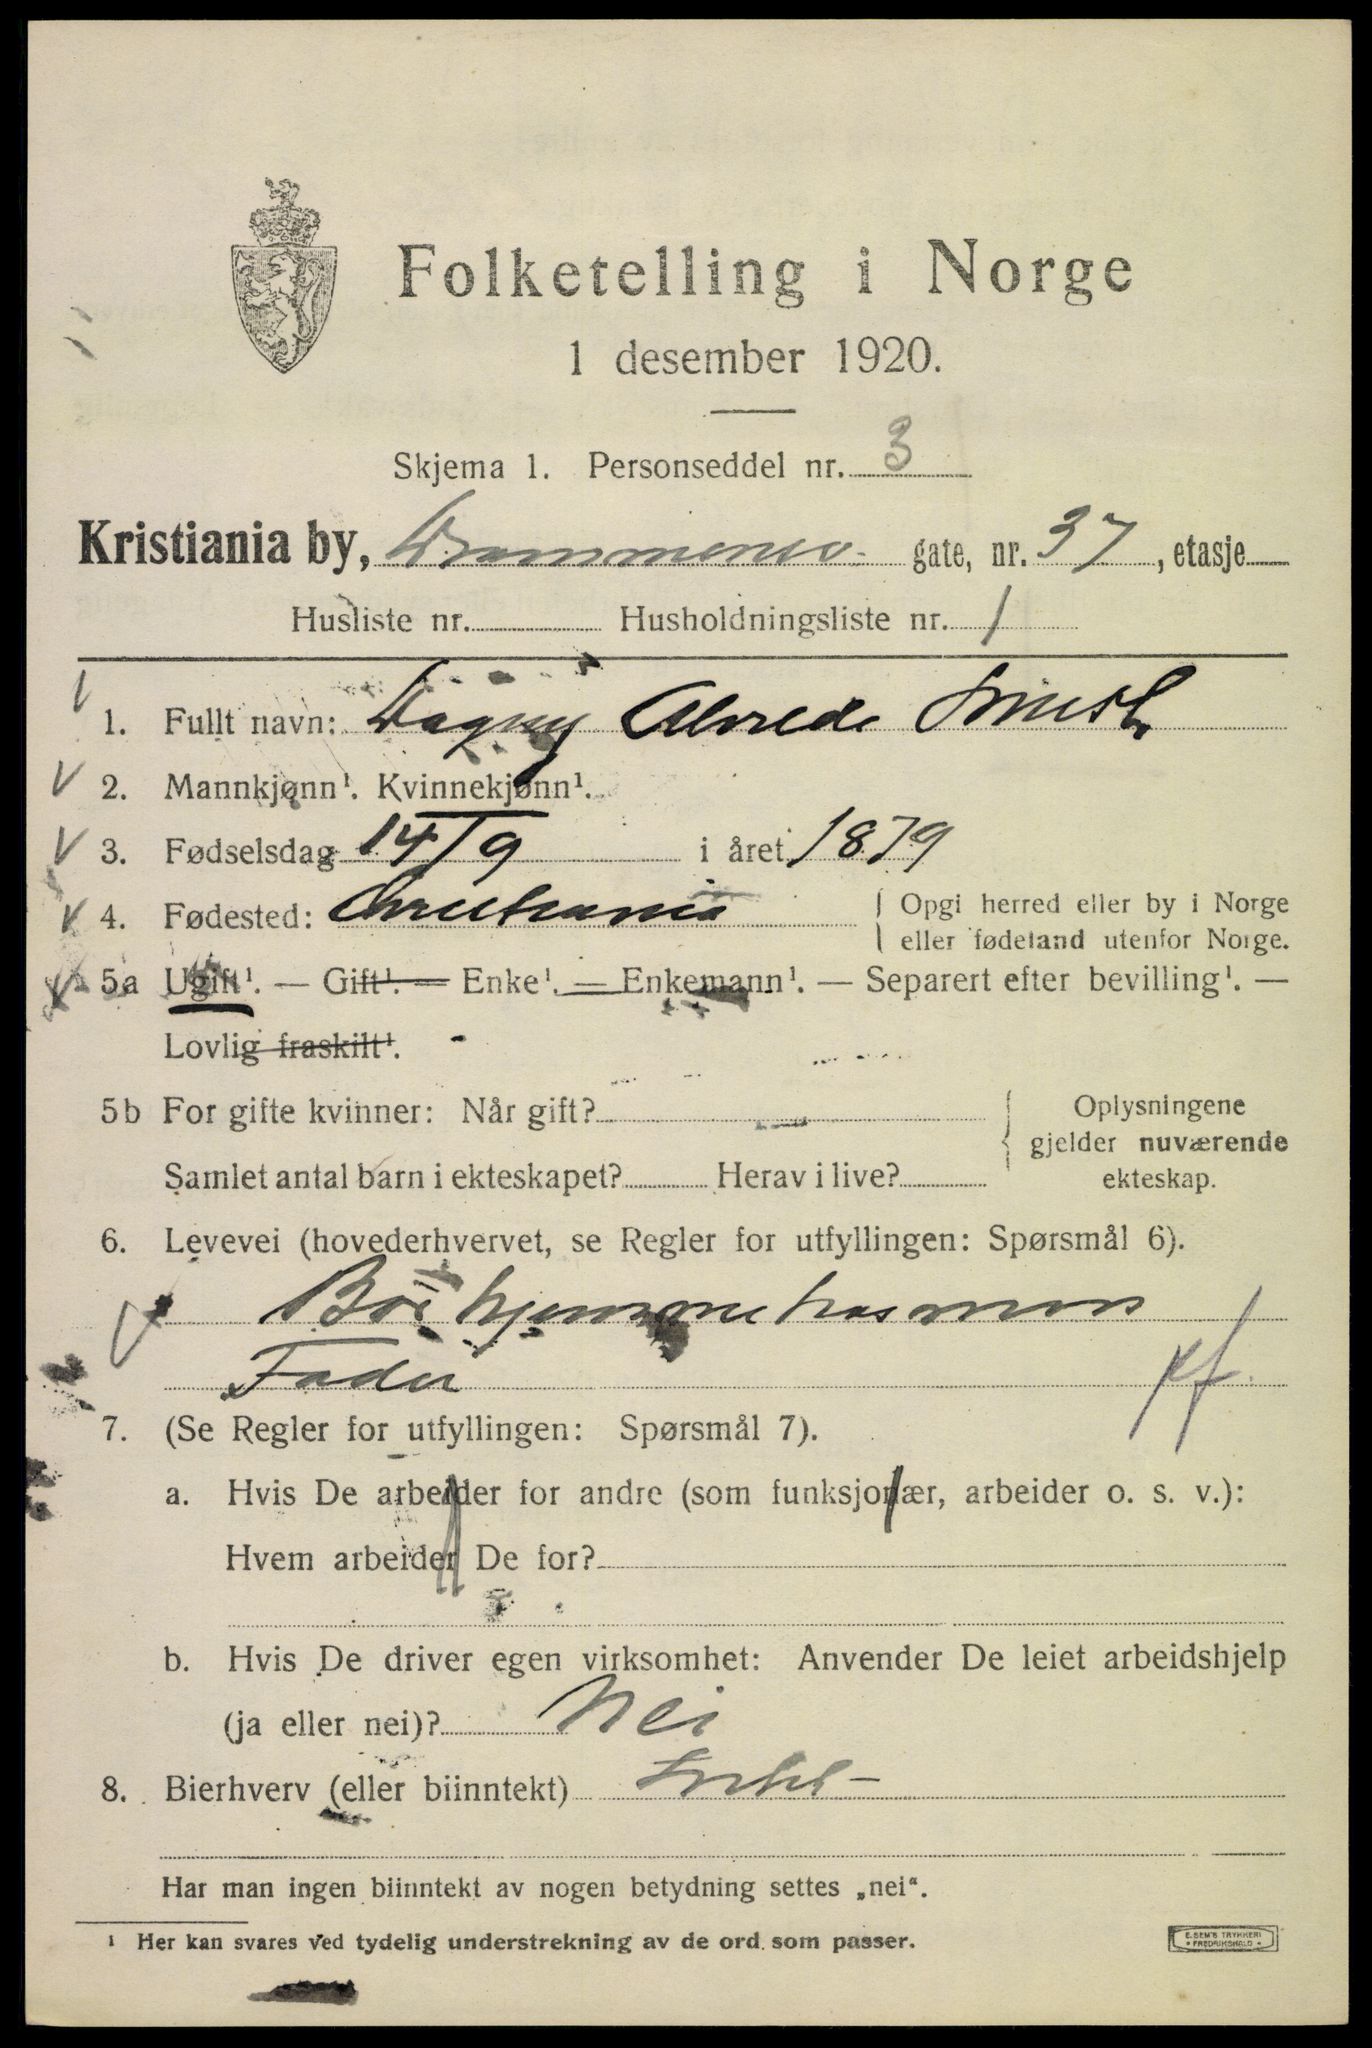 Folketelling i Norge
1 desember 1920.
Skjema 1. Personseddel nr. 3
Kristiania by, Drammensv. gate, nr. 37, etasje
Husliste nr. Husholdningsliste nr. 1
1. Fullt navn: Dagny
2. Mannkjønn¹. Kvinnekjønn¹.
3. Fødselsdag 14/9 i året 1879
4. Fødested: Christiania { Opgi herred eller by i Norge
eller fødeland utenfor Norge.
5a Ugift¹. — Gift¹. — Enke¹. — Enkemann¹. — Separert efter bevilling¹. —
Lovlig fraskilt¹.
5b For gifte kvinner: Når gift?
Samlet antal barn i ekteskapet? Herav i live?
Oplysningene
gjelder nuværende
ekteskap.
6. Levevei (hovederhvervet, se Regler for utfyllingen: Spørsmål 6).
Bor hjemme hos min
Fader
7. (Se Regler for utfyllingen: Spørsmål 7).
a. Hvis De arbeider for andre (som funksjonær, arbeider o. s. v.):
Hvem arbeider De for?
b. Hvis De driver egen virksomhet: Anvender De leiet arbeidshjelp
(ja eller nei)? Nei
8. Bierhverv (eller biinntekt)
Har man ingen biinntekt av nogen betydning settes „nei“.
¹ Her kan svares ved tydelig understrekning av de ord som passer.
E. SEM'S TRYKKERI
• FREDRIKSHALD •